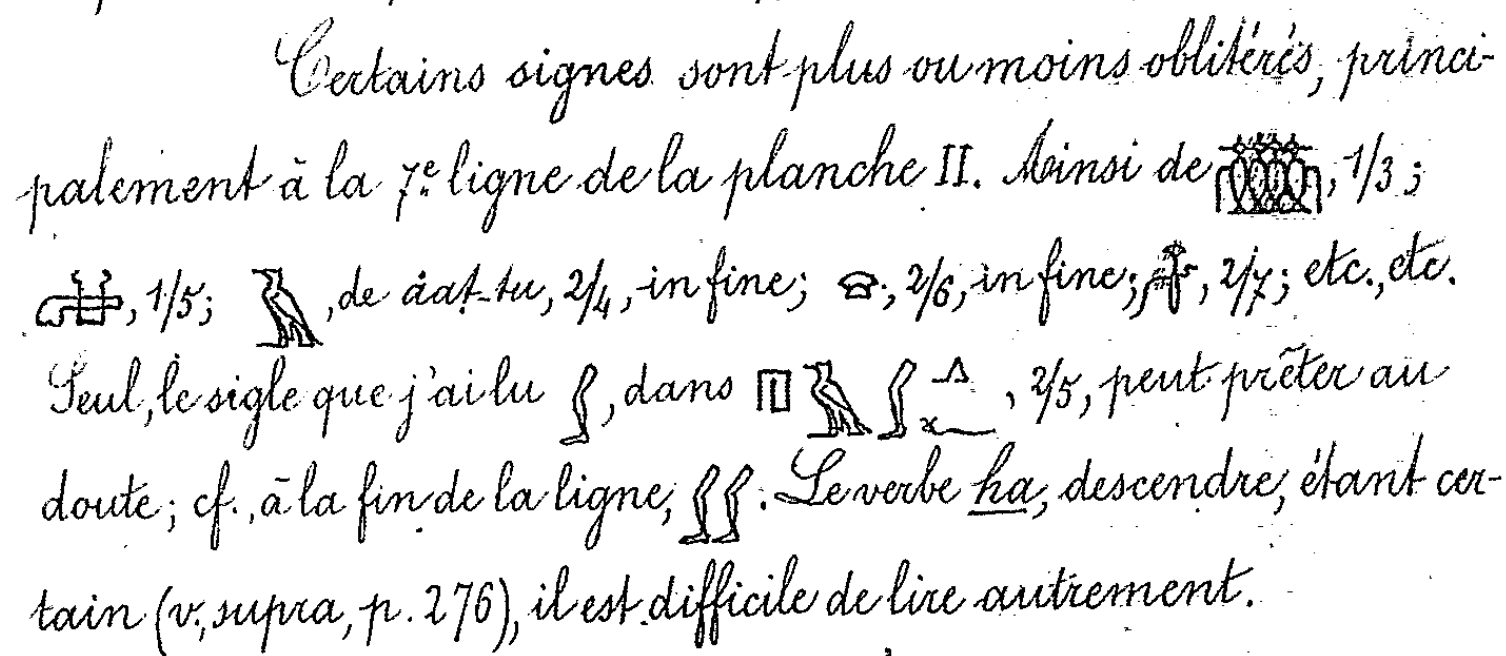 Certains signes sont plus ou moins oblitérés, princi-
palement à la 7e ligne de la planche II. Ainsi de , 1/3 ;
, 1/5 ; 𓅓, de åat-tu, 2/4, in fine ; , 2/6, in fine ; , 2/7 ; etc., etc.
Seul, le sigle que j'ai lu 𓃀, dans 𓉔 𓅓 𓃀 𓂻 𓆑, 2/5, peut prêter au
doute ; cf., à la fin de la ligne, 𓃀𓃀. Le verbe ha, descendre, étant cer-
tain (v. supra, p. 276), il est difficile de lire autrement.